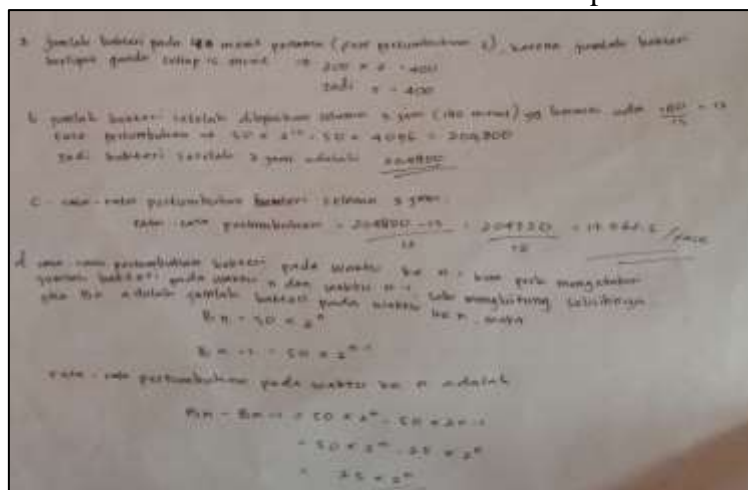 a jumlah bakteri pada menit pertama (fase pertumbuhan ), karena jumlah bakteri
berlipat ganda setiap 15 menit → 200 x 2 = 400
Jadi = 400
b jumlah bakteri setelah selama 3 jam (180 menit) yg berarti ada 180/15 = 12
fase pertumbuhan → 50 x 2¹² = 50 x 4096 = 204800
Jadi bakteri setelah 3 jam adalah 204800
c. rata-rata pertumbuhan bakteri selama 3 jam.
rata-rata pertumbuhan = =
d rata-rata pertumbuhan bakteri pada waktu ke n = kita perlu
jumlah bakteri pada waktu n dan waktu n-1 lalu menghitung selisihnya
jika Bn adalah jumlah bakteri pada waktu ke n, maka
Bn = 50 x 2ⁿ
Bn-1 = 50 x 2ⁿ⁻¹
rata-rata pertumbuhan pada waktu ke n adalah
Bn - Bn-1 = 50 x 2ⁿ - 50 x 2n-1
= 50 x 2ⁿ - 25 x 2ⁿ
= 25 x 2ⁿ